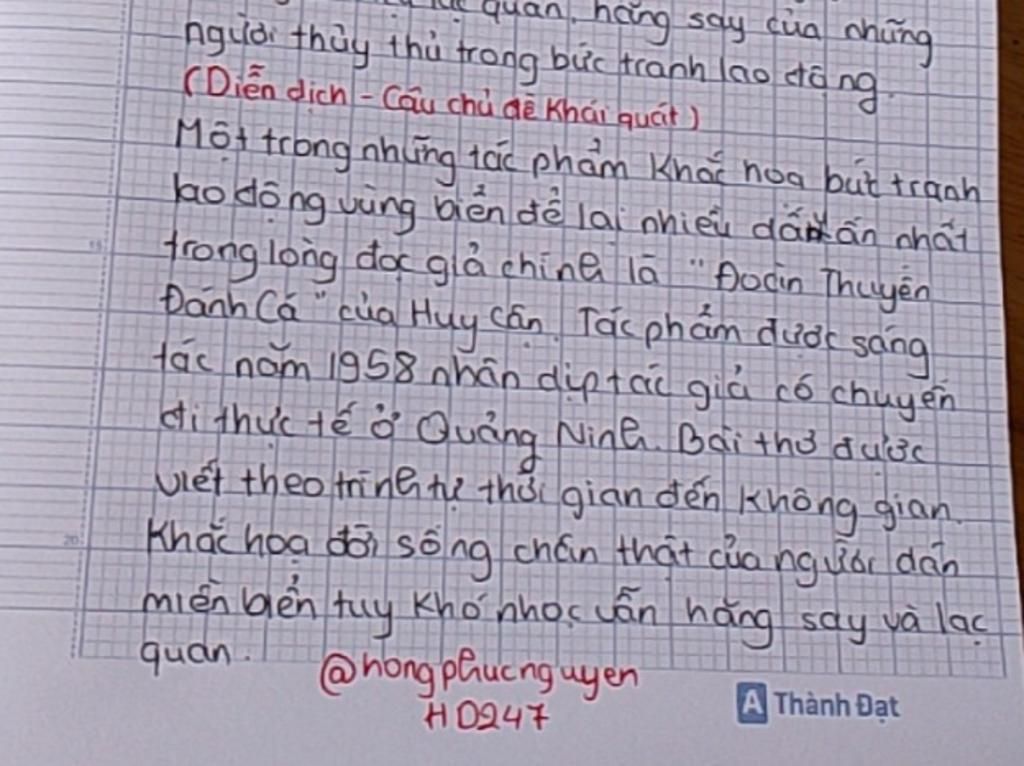 quan, hăng say của những
người thủy thủ trong bức tranh lao động.
(Diễn dịch - Câu chủ đề khái quát)
Một trong những tác phẩm khắc hoạ bức tranh
lao động vùng biển để lại nhiều dấu ấn nhất
trong lòng đọc giả chính là "Đoàn Thuyền
Đánh Cá" của Huy Cận. Tác phẩm được sáng
tác năm 1958 nhân dịp tác giả có chuyến
đi thực tế ở Quảng Ninh. Bài thơ được
viết theo trình tự thời gian đến không gian.
Khắc hoạ đời sống chân thật của người dân
miền biển tuy khó nhọc vẫn hăng say và lạc
quan.
@hongphucnguyen
HD247
19
20
A Thành Đạt